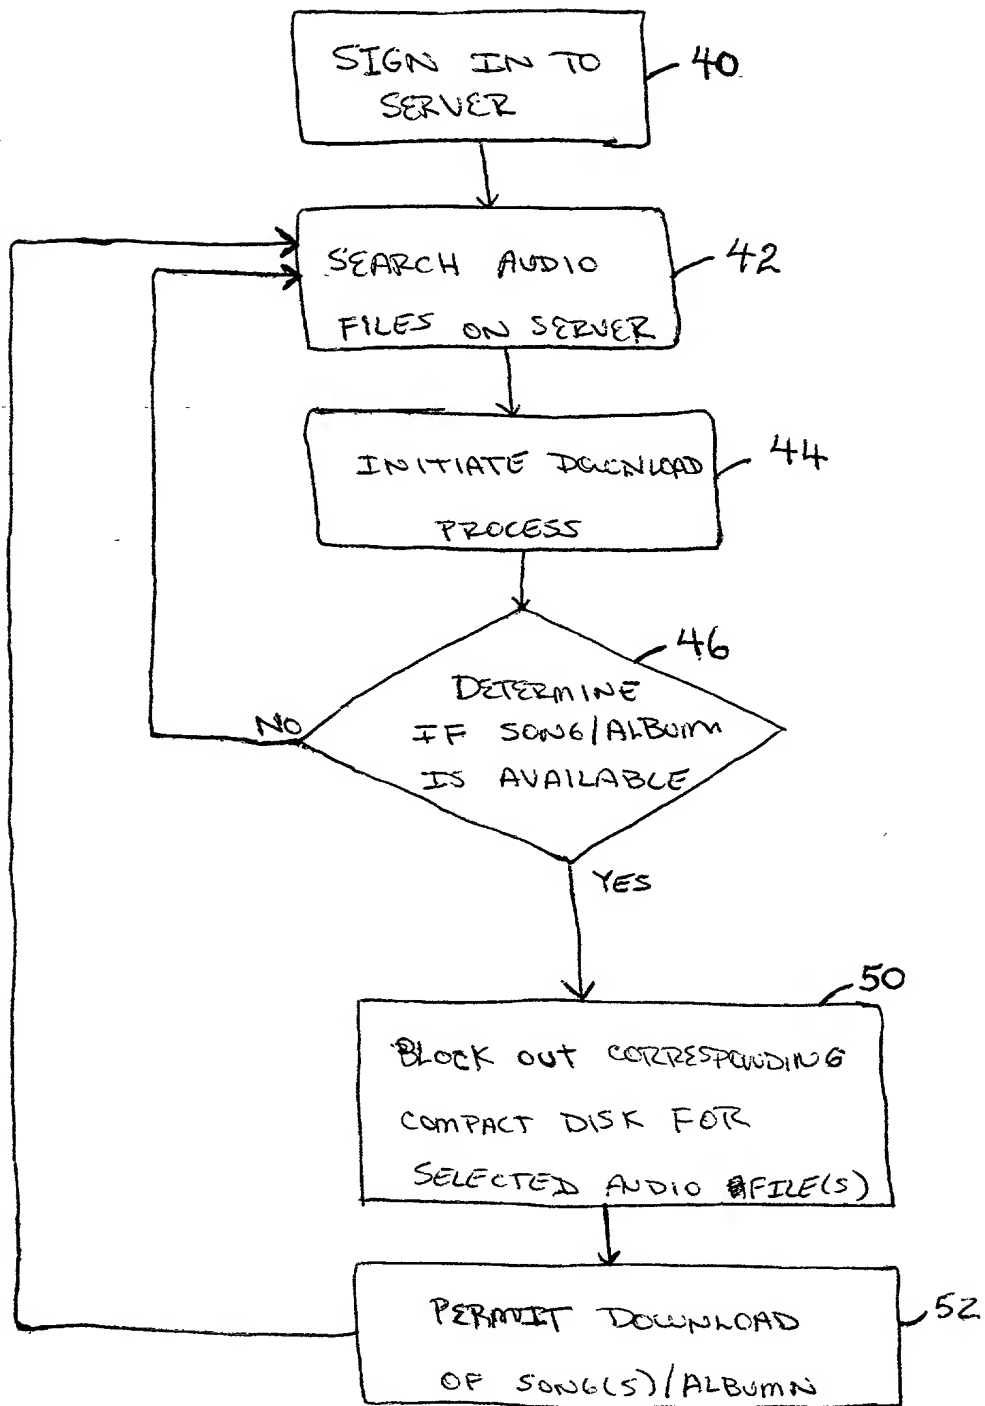 SIGN IN TO
SERVER
40
SEARCH AUDIO
FILES ON SERVER
42
INITIATE DOWNLOAD
PROCESS
44
46
DETERMINE
IF SONG/ALBUM
IS AVAILABLE
NO
YES
50
BLOCK OUT CORRESPONDING
COMPACT DISK FOR
SELECTED AUDIO FILE(S)
PERMIT DOWNLOAD
OF SONG(S)/ALBUMN
52